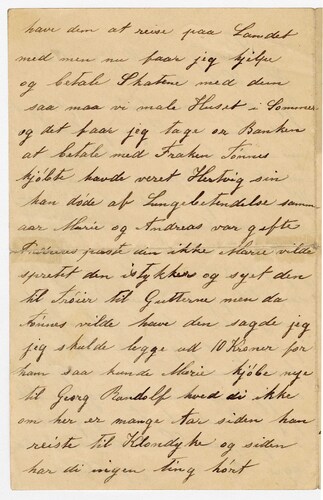 have dem at reise paa Landet
med men nu faar jeg hjelpe
og betale Skatene med dem
saa maa vi male Huset i Sommer
og det faar jeg tage av Banken
at betale med Fraken Tønnes
kjøbte havde veret Hertvig sin
han døde af Lungebetendelse samm
aar Marie og Andreas var gefte
Tønnes paste den ikke Marie vilde
sprettet den istykkes og syet den
til Trøier til Gutterne men da
Tønnes vilde have den sagde jeg
jeg skulde legge ud 10 Kroner for
ham saa kunde Marie kjøbe nye
til Georg Randolf hved di ikke
om her er mange aar siden han
reiste til Klondyke og siden
har di ingen ting hørt